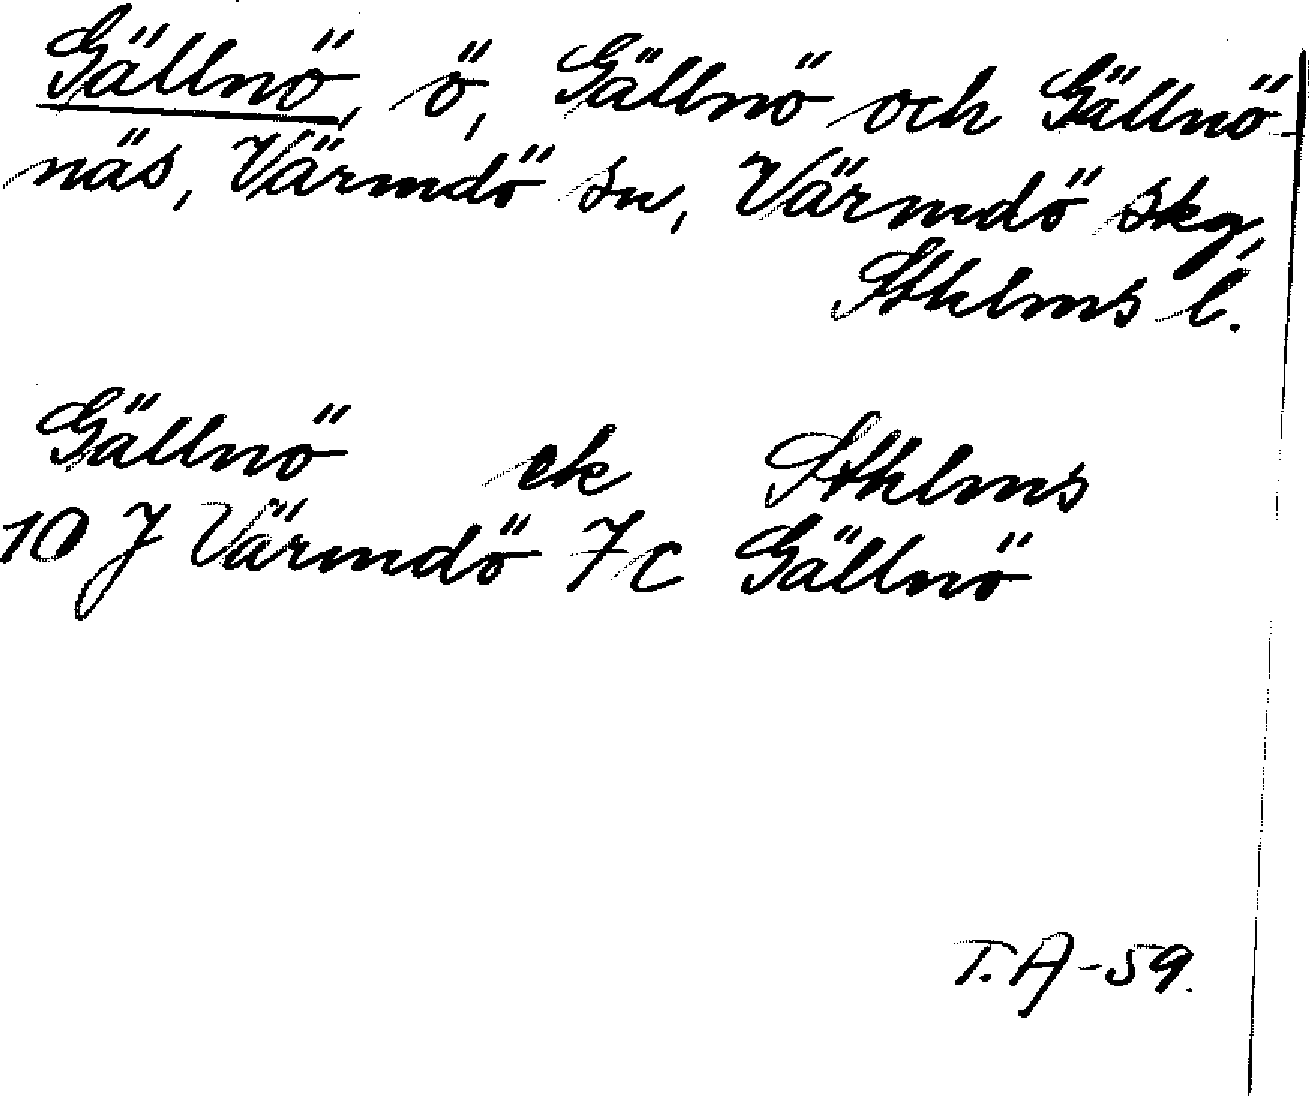 Gällnö, ö, Gällnö och Gällnö-
näs, Värmdö sn, Värmdö skg,
Sthlms l.
Gällnö ek Sthlms
10 J Värmdö 7c Gällnö
T.A-59.